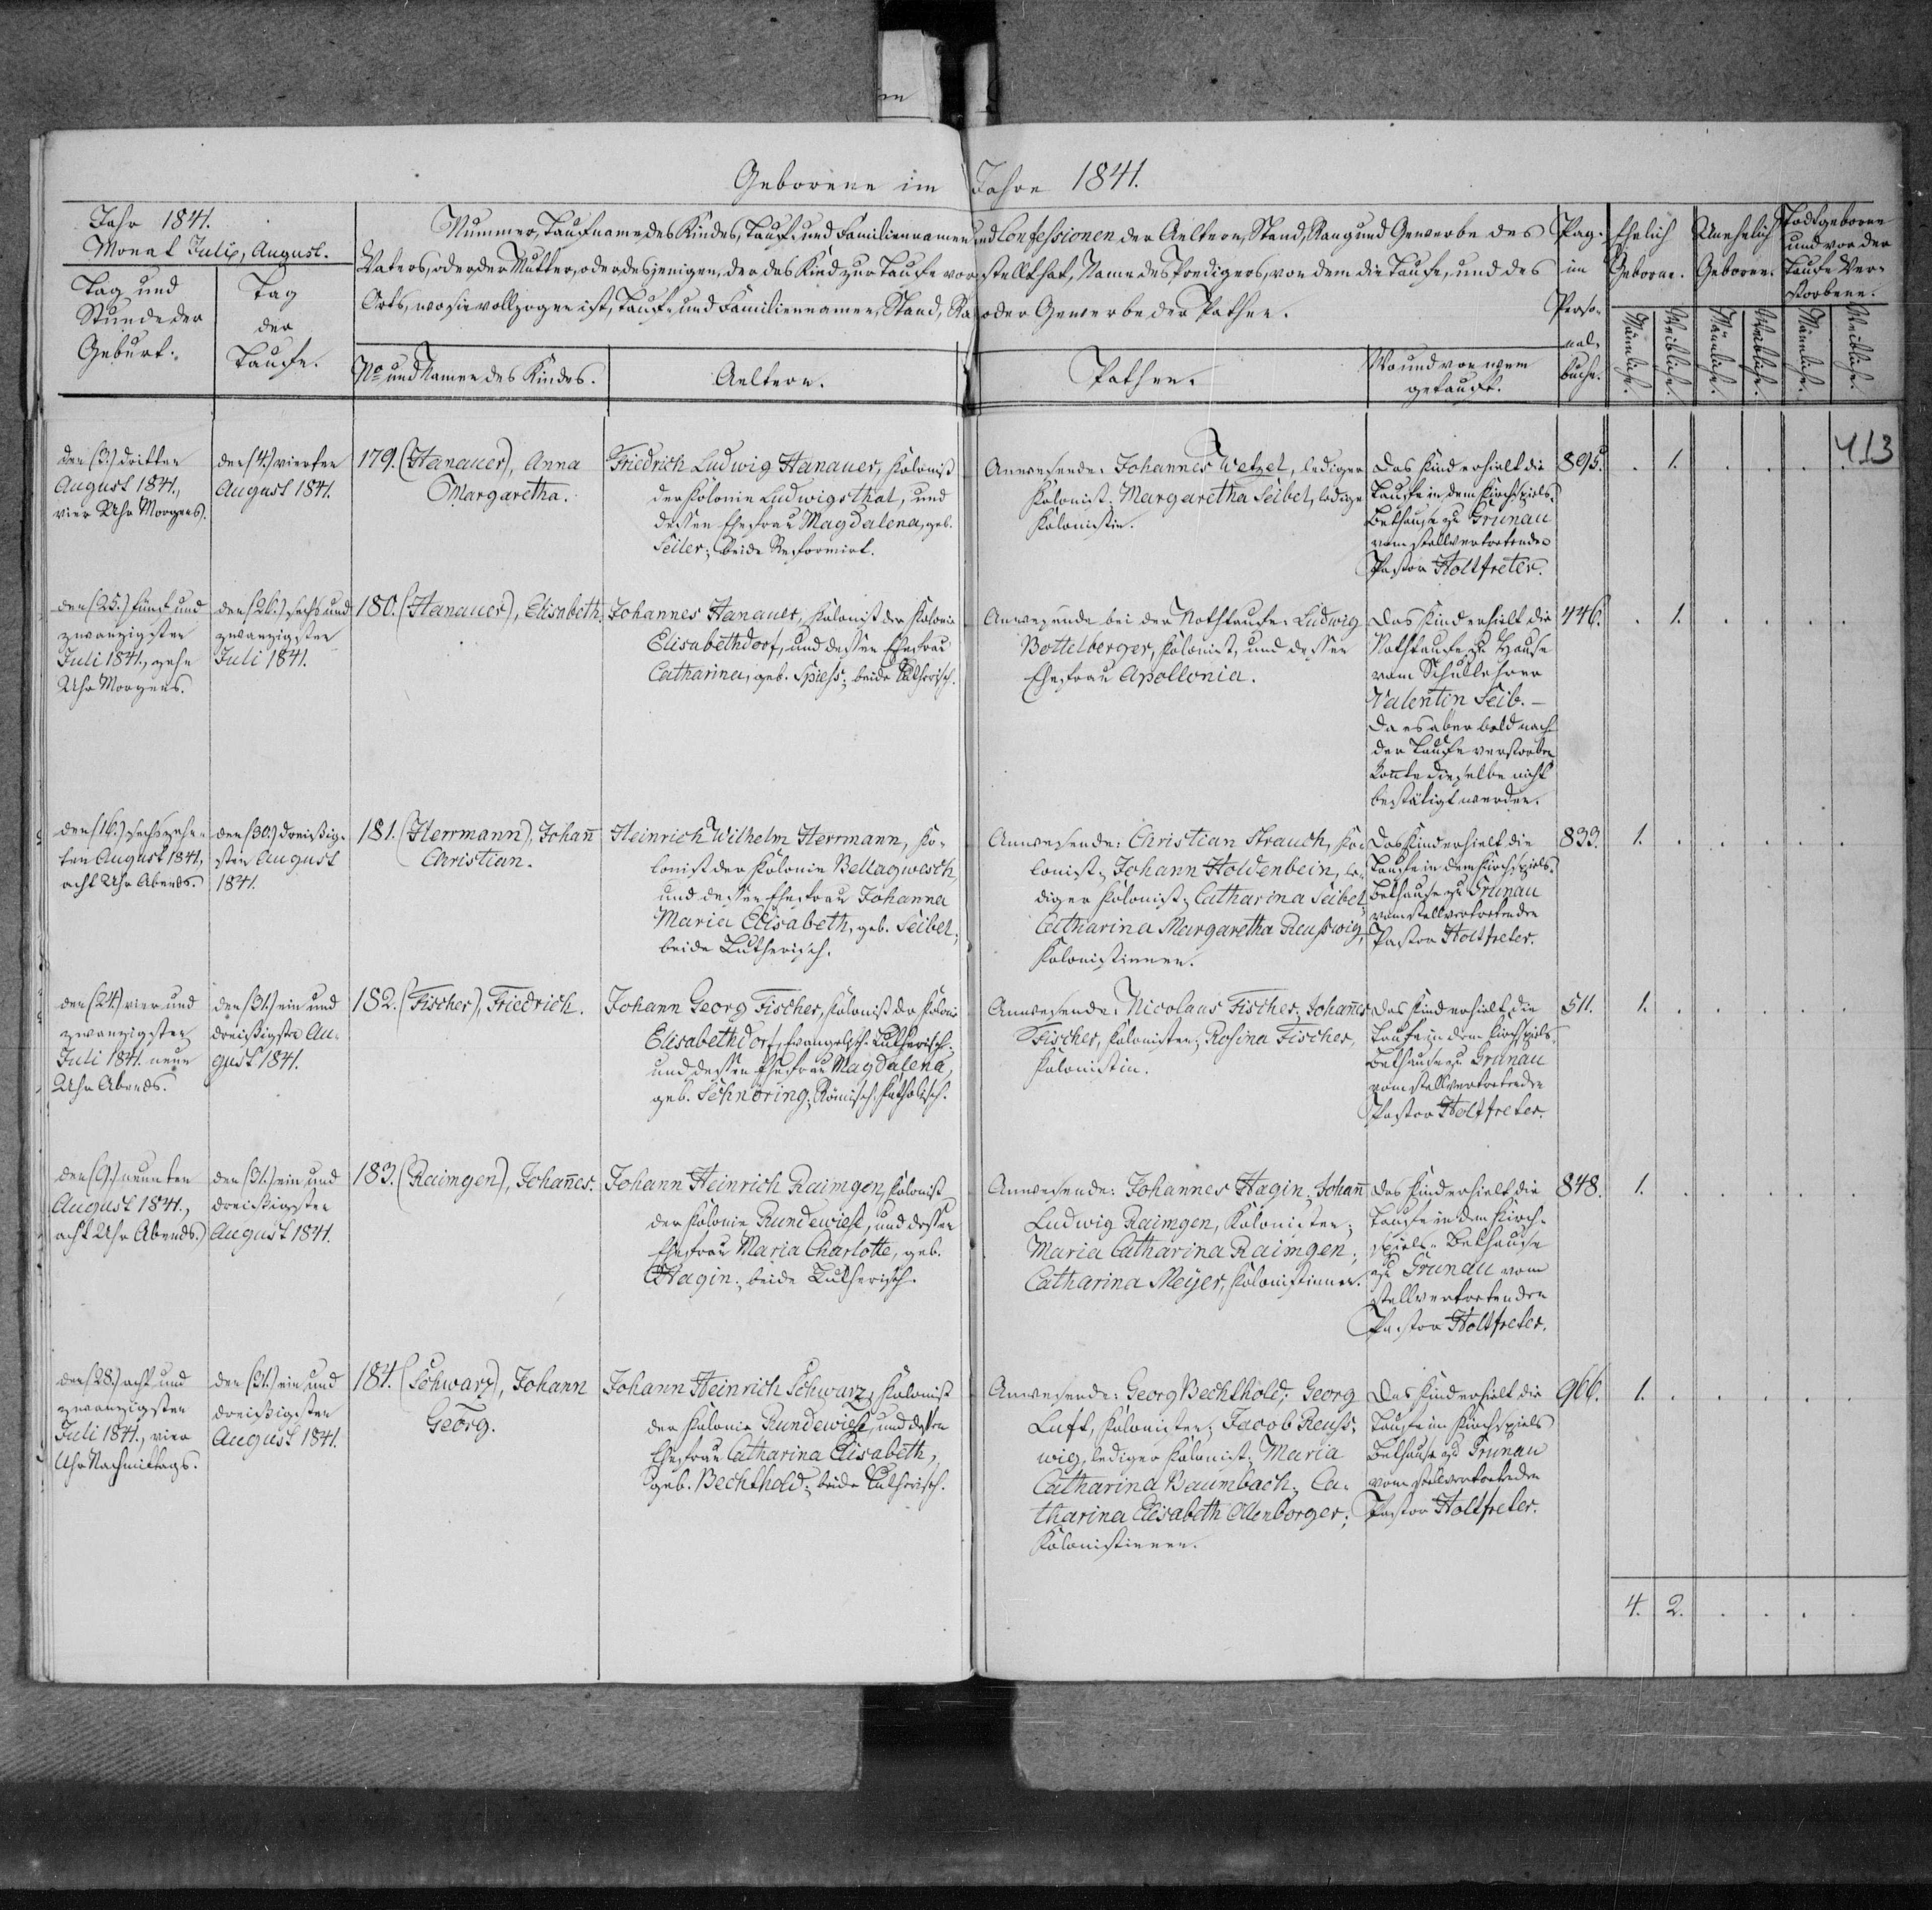 Geborene im Jahre 1841.
Jahr 1841.
Monat July, August.
Tag und
Stunde der
Geburt.
Tag
der
Taufe.
Nummer, Taufname des Kindes, Tauf- und Familiennamen und Confessionen der Aeltern, Stand, Rang und Gewerbe des
Vaters, oder der Mutter, oder desjenigen, der das Kind zur Taufe vorstellt hat, Name des Predigers, von dem die Taufe, und des
Orts, wo sie vollzogen ist, Tauf- und Familiennamen, Stand, Ra oder Gewerbe der Pathen.
No und Namen des Kindes.
Aeltern.
Pathen.
Wo und von wem
getauft.
Pag.
im
Perso-
nal-
buche.
Ehelich
Geborne.
Unehelich
Geborene.
Todtgeborene
und vor der
Taufe Ver-
storbene.
Männliche.
Weibliche.
Männliche.
Weibliche.
Männliche.
Weibliche.
413
den (3.) dritten
August 1841.,
vier Uhr Morgens.
den (4.) vierten
August 1841.
179. (Hanauer), Anna
Margaretha.
Friedrich Ludwig Hanauer, Kolonist
der Kolonie Ludwigsthal, und
dessen Ehefrau Magdalena, geb.
Seiler; beide Reformirt.
Anwesende: Johannes Wetzel, lediger
Kolonist. Margaretha Seibel, ledige
Kolonistin.
Das Kind erhielt die
Taufe in dem Kirchspiels-
Bethause zu Grunau
vom stellvertretenden
Pastor Holtfreter.
895. . 1. . . . .
den (25.) fünf und
zwanzigsten
Juli 1841., zehn
Uhr Morgens.
den (26.) sechs und
zwanzigsten
Juli 1841.
180. (Hanauer), Elisabeth.
Johannes Hanauer, Kolonist der Kolonie
Elisabethdorf, und dessen Ehefrau
Catharina, geb. Spiess; beide Lutherisch.
Anwesende bei der Nothtaufe: Ludwig
Bottelberger, Kolonist, und dessen
Ehefrau Apollonia.
Das Kind erhielt die
Nothtaufe zu Hause
vom Schullehrer
Valentin Seib. –
Da es aber bald nach
der Taufe verstorben
konnte dieselbe nicht
bestätigt werden.
446. . 1. . . . .
den (16.) sechszehn-
ten August 1841,
acht Uhr Abends.
den (30.) dreißig-
sten August
1841.
181. (Herrmann), Johañ
Christian.
Heinrich Wilhelm Herrmann, Ko-
lonist der Kolonie Bellagwesch,
und dessen Ehefrau Johanna
Maria Elisabeth, geb. Seibel;
beide Lutherisch.
Anwesende: Christian Strauch, Ko-
lonist; Johann Holdenbein, le-
diger Kolonist; Catharina Seibel;
Catharina Margaretha Reusswig,
Kolonistinnen.
Das Kind erhielt die
Taufe in dem Kirchspiels-
Bethause zu Grunau
vom stellvertretenden
Pastor Holtfreter.
833. 1. . . . . .
den (24.) vier und
zwanzigsten
Juli 1841. neun
Uhr Abends.
den (31.) ein und
dreißigsten Au-
gust 1841.
182. (Fischer), Friedrich.
Johann Georg Fischer, Kolonist der Kolonie
Elisabethdorf, Evangelisch-Lutherisch,
und dessen Ehefrau Magdalena,
geb. Schnöring; Römisch-Katholisch.
Anwesende: Nicolaus Fischer; Johañes
Fischer, Kolonisten; Rosina Fischer,
Kolonistin.
Das Kind erhielt die
Taufe in dem Kirchspiels-
Bethause zu Grunau
vom stellvertretenden
Pastor Holtfreter.
511. 1. . . . . .
den (9.) neunten
August 1841.,
acht Uhr Abends.
den (31.) ein und
dreißigsten
August 1841.
183. (Raimgen), Johañes.
Johann Heinrich Raimgen, Kolonist
der Kolonie Rundewiese, und dessen
Ehefrau Maria Charlotte, geb.
Hagin; beide Lutherisch.
Anwesende: Johannes Hagin; Johañ
Ludwig Raimgen, Kolonisten;
Maria Catharina Raimgen;
Catharina Meyer, Kolonistinnen.
Das Kind erhielt die
Taufe in dem Kirch-
spiels-Bethause
zu Grunau vom
stellvertretenden
Pastor Holtfreter.
848. 1. . . . . .
den (28.) acht und
zwanzigsten
Juli 1841., vier
Uhr Nachmittags.
den (31.) ein und
dreißigsten
August 1841.
184. (Schwarz), Johann
Georg.
Johann Heinrich Schwarz, Kolonist
der Kolonie Rundewiese, und dessen
Ehefrau Catharina Elisabeth,
geb. Bechthold; beide Lutherisch.
Anwesende: Georg Bechthold; Georg
Luft, Kolonisten; Jacob Reuss-
wig, lediger Kolonist; Maria
Catharina Baumbach; Ca-
tharina Elisabeth Ollenborger;
Kolonistinnen.
Das Kind erhielt die
Taufe im Kirchspiels
Bethause zu Grunau
vom stellvertretenden
Pastor Holtfreter.
966. 1. . . . . .
4. 2. . . . .